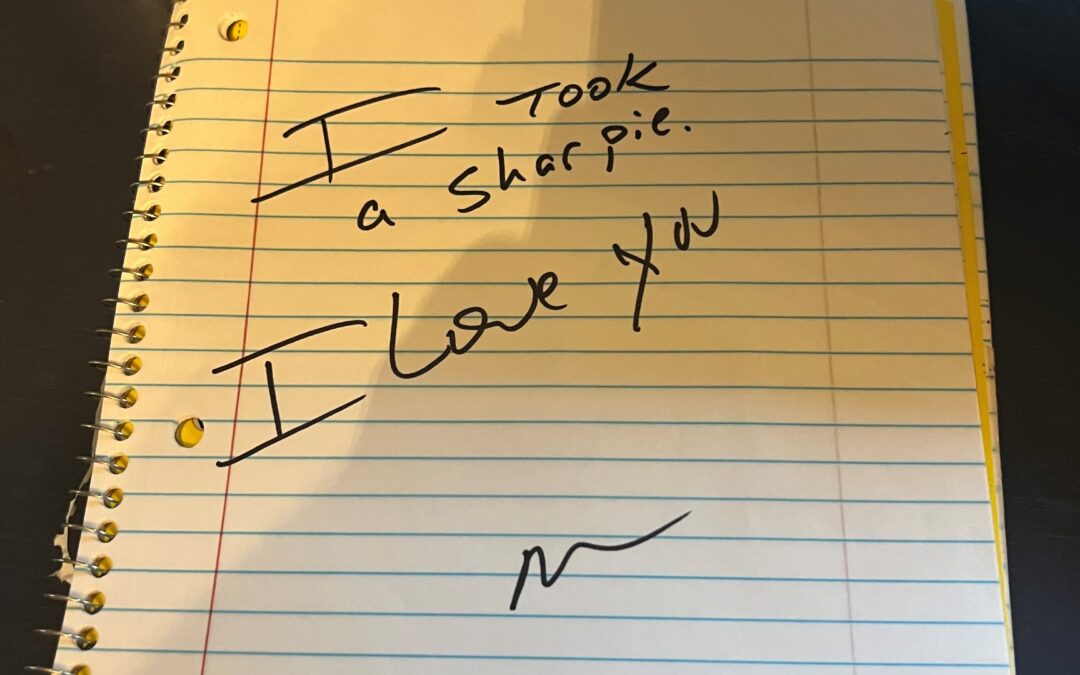 I Took
a sharpie.
I Love you
N